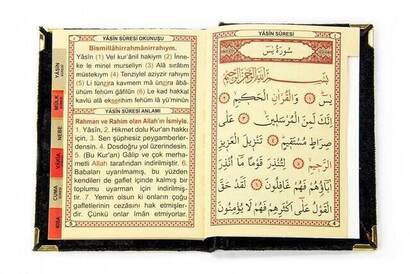 YÂSİN
MÜLK
NEBE
VAKIA
CUMA
KISA
YÂSİN SÛRESİ OKUNUŞU
Bismillâhirrahmânirrahıym.
(1) Vel kur'ânil hakiym (2) İnne-
ke le minel murseliyn (3) Alâ sırâtım
müstekiym (4) Tenziylel aziyzir rahıym
(5) Li tünzira kavmen mâ ünzira âbâü-
hüm fehüm ğâfilûn (6) Le kad hakkal
kavlü alâ ekserihim fehüm lâ yü'minûn
YÂSİN SÛRESİ ANLAMI
Rahman ve Rahim olan Allah'ın İsmiyle.
1. Yâsîn, 2. Hikmet dolu Kur'an hakkı
için, 3. Sen şüphesiz peygamberler-
densin. 4. Dosdoğru yol üzerindesin.
5. (Bu Kur'an) Gâlip ve çok merha-
metli Allah tarafından indirilmiştir. 6.
Babaları uyarılmamış, bu yüzden
kendileri de gaflet içinde kalmış bir
toplumu uyarman için indirilmiş-
tir. 7. Yemin olsun ki onların çoğu
gafletlerinin cezasını hak etmişler-
dir. Çünkü onlar îmân etmiyorlar.
YÂSİN SÛRESİ
سُورَةُ يٰسٓ
بِسْمِ اللّٰهِ الرَّحْمٰنِ الرَّحِيمِ
يٰسٓ ﴿١﴾ وَالْقُرْاٰنِ الْحَكِيمِ ﴿٢﴾
اِنَّكَ لَمِنَ الْمُرْسَلِينَ ﴿٣﴾ عَلٰى
صِرَاطٍ مُسْتَقِيمٍ ﴿٤﴾ تَنْزِيلَ الْعَزِيزِ
الرَّحِيمِ ﴿٥﴾ لِتُنْذِرَ قَوْمًا مَٓا اُنْذِرَ
اٰبَٓاؤُ۬هُمْ فَهُمْ غَافِلُونَ ﴿٦﴾ لَقَدْ حَقَّ
الْقَوْلُ عَلٰٓى اَكْثَرِهِمْ فَهُمْ لَا يُؤْمِنُونَ